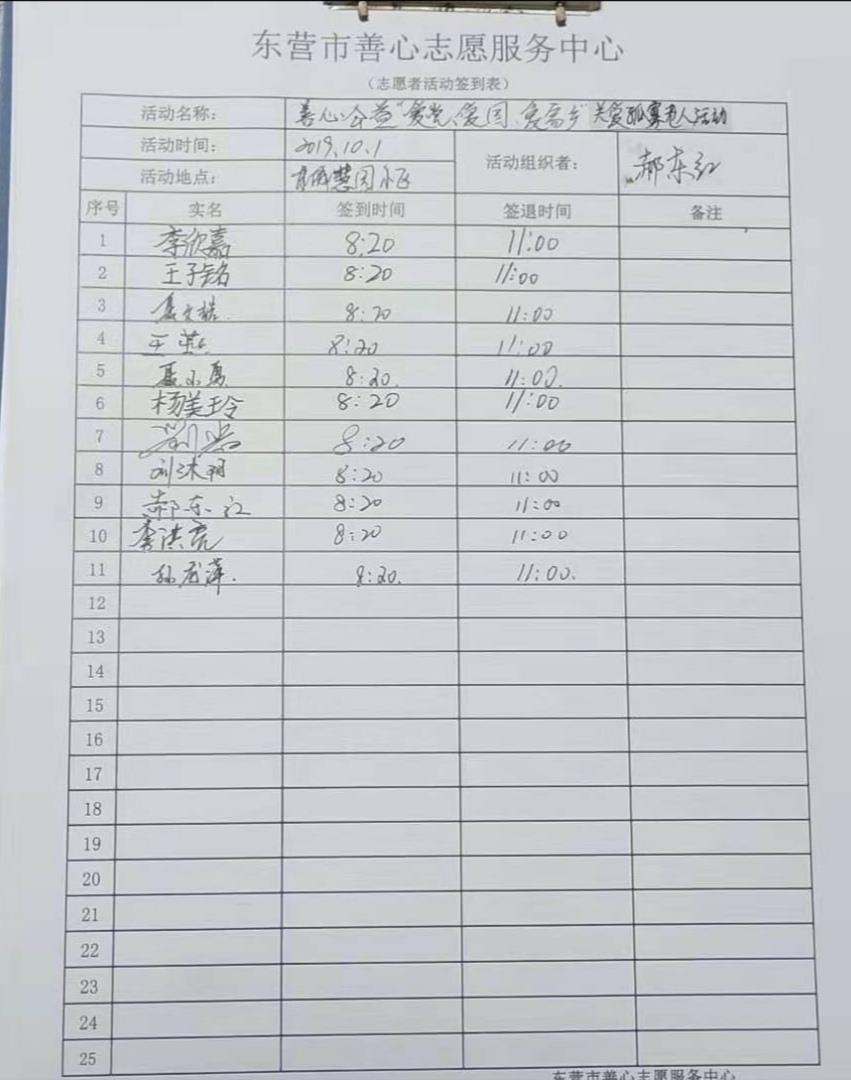 东营市善心志愿服务中心
（志愿者活动签到表）
活动名称： 善心公益"爱党、爱国、爱家乡"关爱孤寡老人活动
活动时间： 2019.10.1 活动组织者： 郝东红
活动地点：
序号 实名 签到时间 签退时间 备注
1 李欣嘉 8:20 11:00
2 王子铭 8:20 11:00
3 8:20 11:00
4 王燕 8:20 11:00
5 聂小勇 8:20. 11:00.
6 杨美玲 8:20 11:00
7 8:20 11:00
8 刘沐玥 8:20 11:00
9 郝东红 8:20 11:00
10 李洪亮 8:20 11:00
11 孙龙萍. 8:20. 11:00.
12
13
14
15
16
17
18
19
20
21
22
23
24
25
东营市善心志愿服务中心